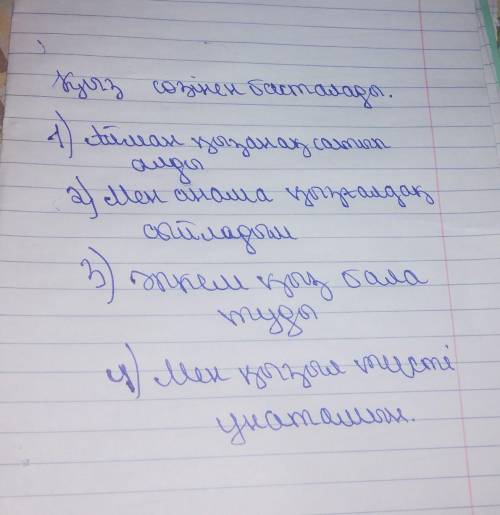 Қыз сөзінен басталады.
1) Айман қызанақ сатып
алды
2) Мен анама қызғалдақ
сыйладым
3) Әпкем қыз бала
туды
4) Мен қызыл түсті
ұнатамын.